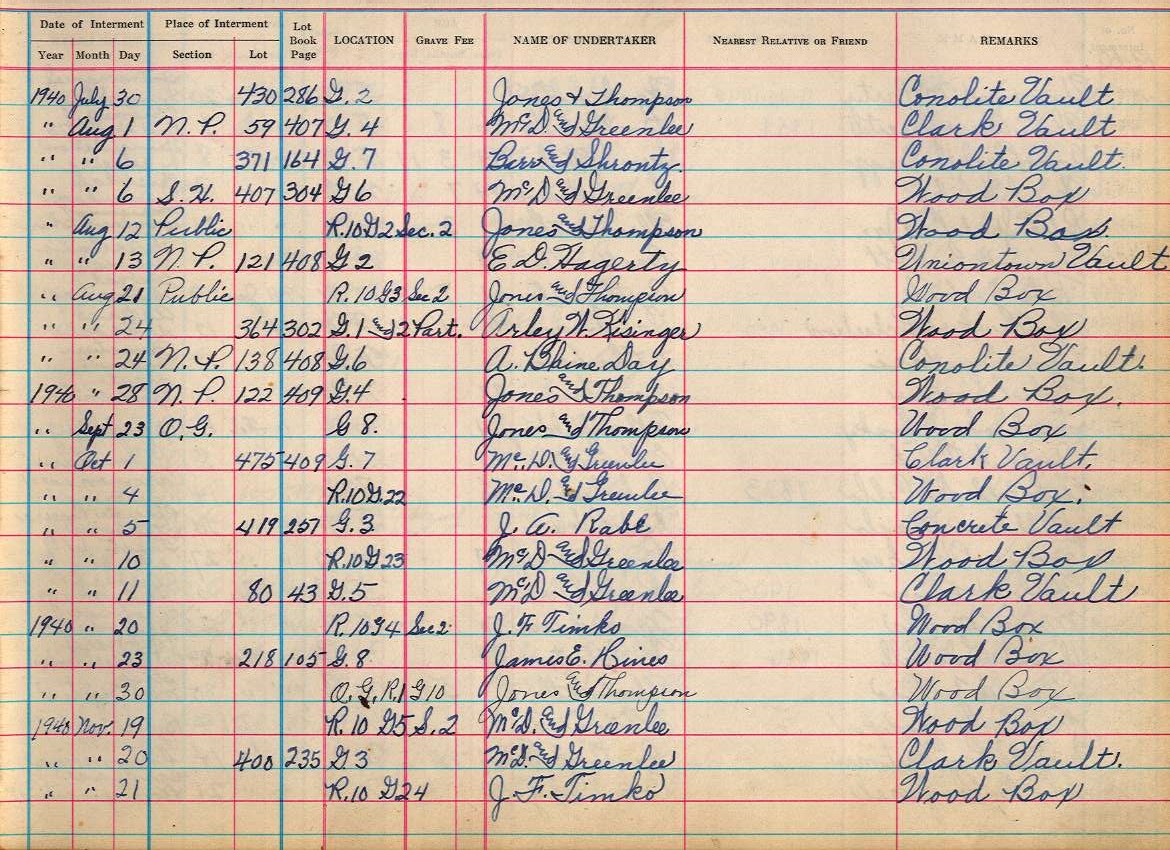 Date of Interment Place of Interment Lot Book Page LOCATION GRAVE FEE NAME OF UNDERTAKER NEAREST RELATIVE OR FRIEND REMARKS
Year Month Day Section Lot
1940 July 30 430 286 G. 2 Jones & Thompson Conolite Vault
" Aug 1 N. P. 59 407 G. 4 McD. and Greenlee Clark Vault
" " 6 371 164 G. 7 Barr and Shrontz. Conolite Vault.
" " 6 S. H. 407 304 G 6 McD and Greenlee Wood Box
" Aug 12 Public R.10 G2 Sec. 2 Jones and Thompson Wood Box.
" " 13 N. P. 121 408 G 2 E. D. Hagerty Uniontown Vault
" Aug 21 Public R. 10 G3 Sec 2 Jones and Thompson Wood Box
" " 24 364 302 G. 1 and 2 Part. Arley W. Risinger Wood Box
" " 24 N. P. 138 408 G. 6 A. Blaine Day Conolite Vault.
1940 " 28 N. P. 122 409 G. 4 Jones and Thompson Wood Box.
" Sept 23 O. G. G 8. Jones and Thompson Wood Box
" Oct 1 475 409 G. 7 Mc. D. and Greenlee Clark Vault.
" " 4 R.10 G.22 Mc. D. and Greenlee Wood Box.
" " 5 419 257 G. 3 J. A. Rabe Concrete Vault
" " 10 R.10 G 23 McD and Greenlee Wood Box
" " 11 80 43 G. 5 McD and Greenlee Clark Vault
1940 " 20 R. 10 G4 Sec 2 J. F Timko Wood Box
" " 23 218 105 G. 8 James E. Hines Wood Box
" " 30 O. G. R.1 G 10 Jones and Thompson Wood Box
1940 Nov. 19 R. 10 G5 S. 2 McD. and Greenlee Wood Box
" " 20 400 235 G 3 McD. and Greenlee Clark Vault.
" " 21 R. 10 G24 J. F. Timko Wood Box